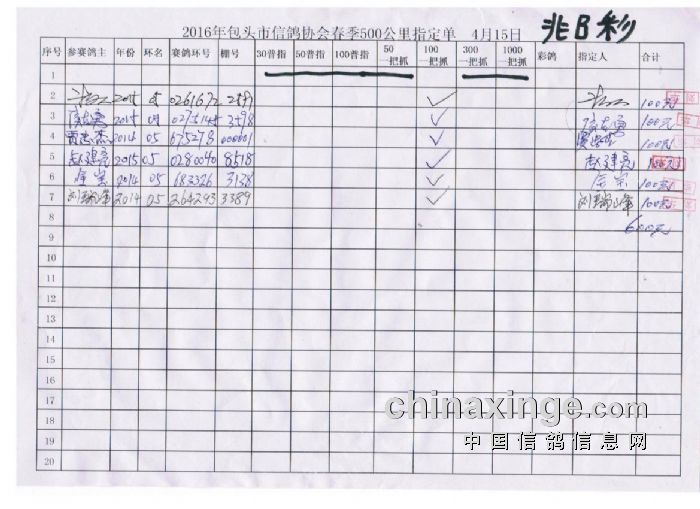 2016年包头市信鸽协会春季500公里指定单 4月15日
序号 参赛鸽主 年份 环名 赛鸽环号 棚号 30普指 50普指 100普指 50一把抓 100一把抓 300一把抓 1000一把抓 彩鸽 指定人 合计
1
2 2015 05 ✓ 100元
3 2015 05 3598 ✓ 100元
4 贾志杰 2014 05 675278 000001 ✓ 贾志杰 100元
5 赵建亮 2015 05 0280040 8518 ✓ 赵建亮
6 金宝 2014 05 683326 3138 ✓ 金宝 100元
7 刘瑞峰 2014 05 264293 3389 ✓ 刘瑞峰 100元
8 600元
9
10
11
12
13
14
15
16
17
18
19
20
chinaxinge.com
中国信鸽信息网